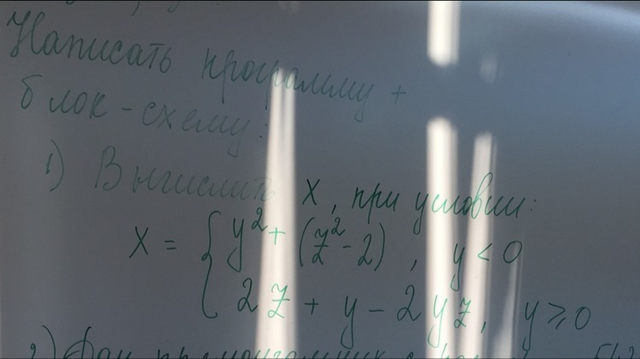 Написать программу +
блок-схему:
1) Вычислить X, при условии:
X = { y² + (z² - 2), y < 0
2z + y - 2yz, y ⩾ 0
2)